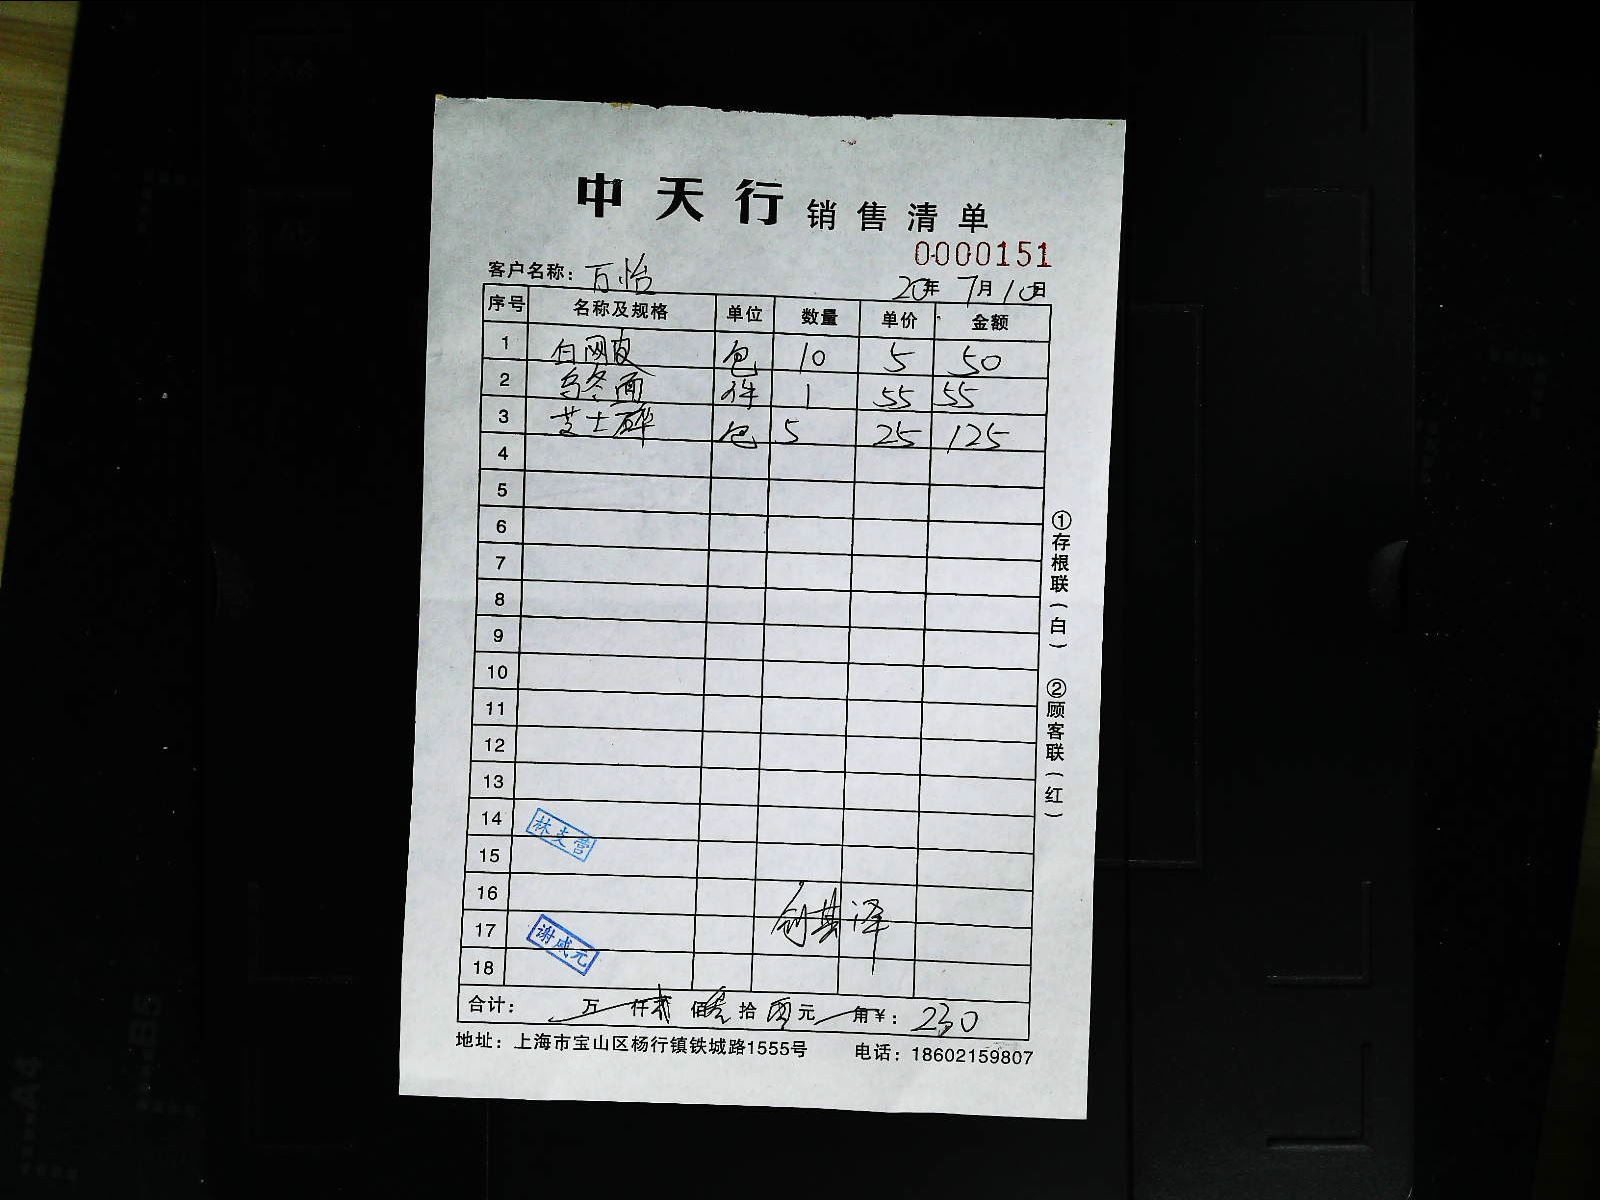 中天行 销售清单
0000151
客户名称：百怡
20年 7月10日
序号 名称及规格 单位 数量 单价 金额
1 白网皮 包 10 5 50
2 乌冬面 件 1 55 55
3 芝士碎 包 5 25 125
4
5
6
7
8
9
10
11
12
13
14
林支营
15
16
17
谢成元
18
合计： 万 仟 贰 佰 叁 拾 元 角 ¥：230
地址：上海市宝山区杨行镇铁城路1555号 电话：18602159807
①存根联（白）
②顾客联（红）